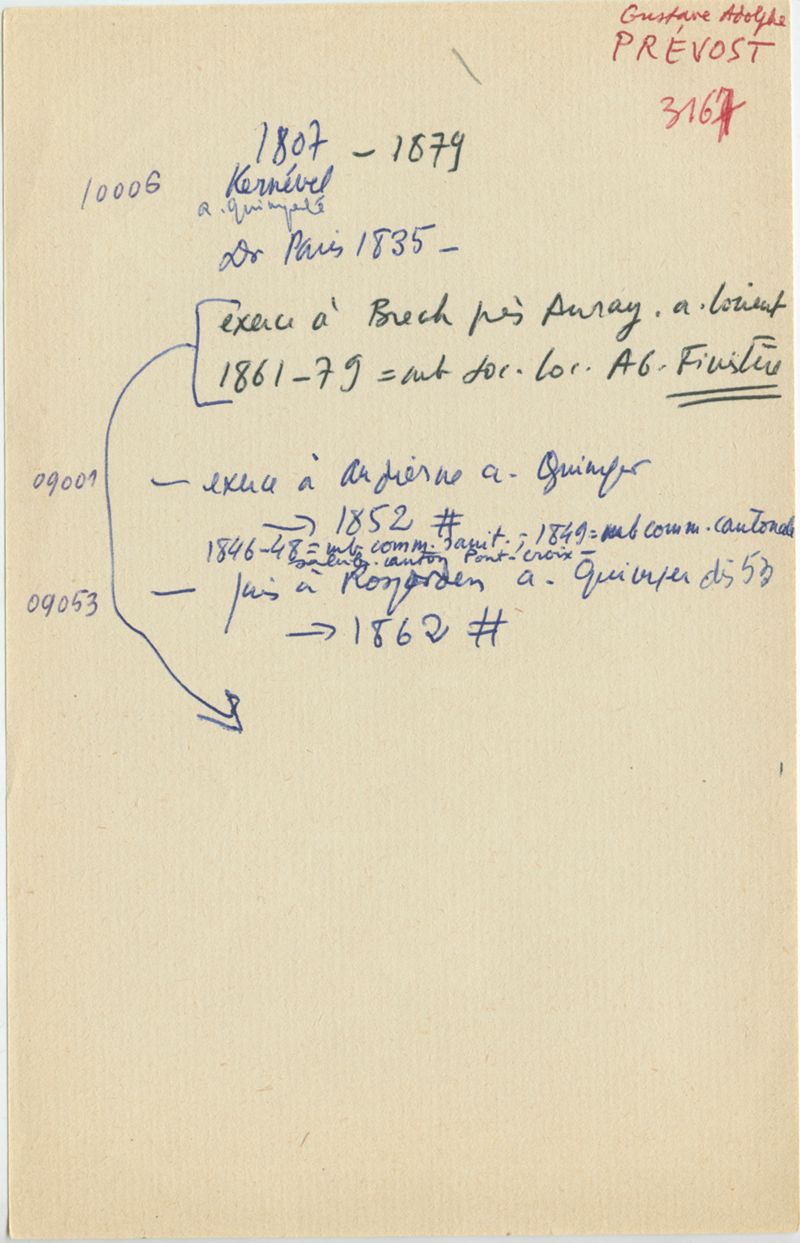 Gustave Adolphe
PRÉVOST
3167
1807 – 1879
10006 Kernével
a. Quimperlé
Dr Paris 1835 –
exerce à Brech près Auray. a. Lorient
1861–79 = mb soc. loc. AG. Finistère
09001 — exerce à Audierne a. Quimper
→ 1852 #
1846–48 = mb comm. sanit. ; 1849 = mb comm. cantonale
salubr. canton Pont-Croix
09053 — puis à Rosporden a. Quimper dès 53
→ 1862 #